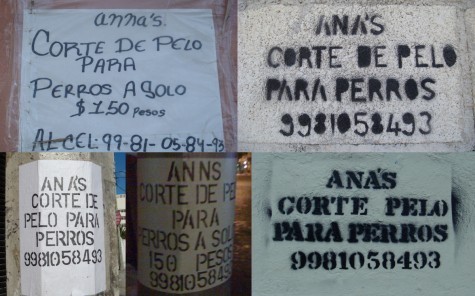 anna's.
CORTE DE PELO
PARA
PERROS A SOLO
$150 PESOS
AL CEL: 99-81-05-84-93
ANA'S
CORTE DE PELO
PARA PERROS
9981058493
ANA'S
CORTE DE
PELO PARA
PERROS
9981058493
ANNS
CORTE DE PE
PARA
PERROS A SOL
150 PESOS
9981058493
ANA'S
CORTE PELO
PARA PERROS
9981058493